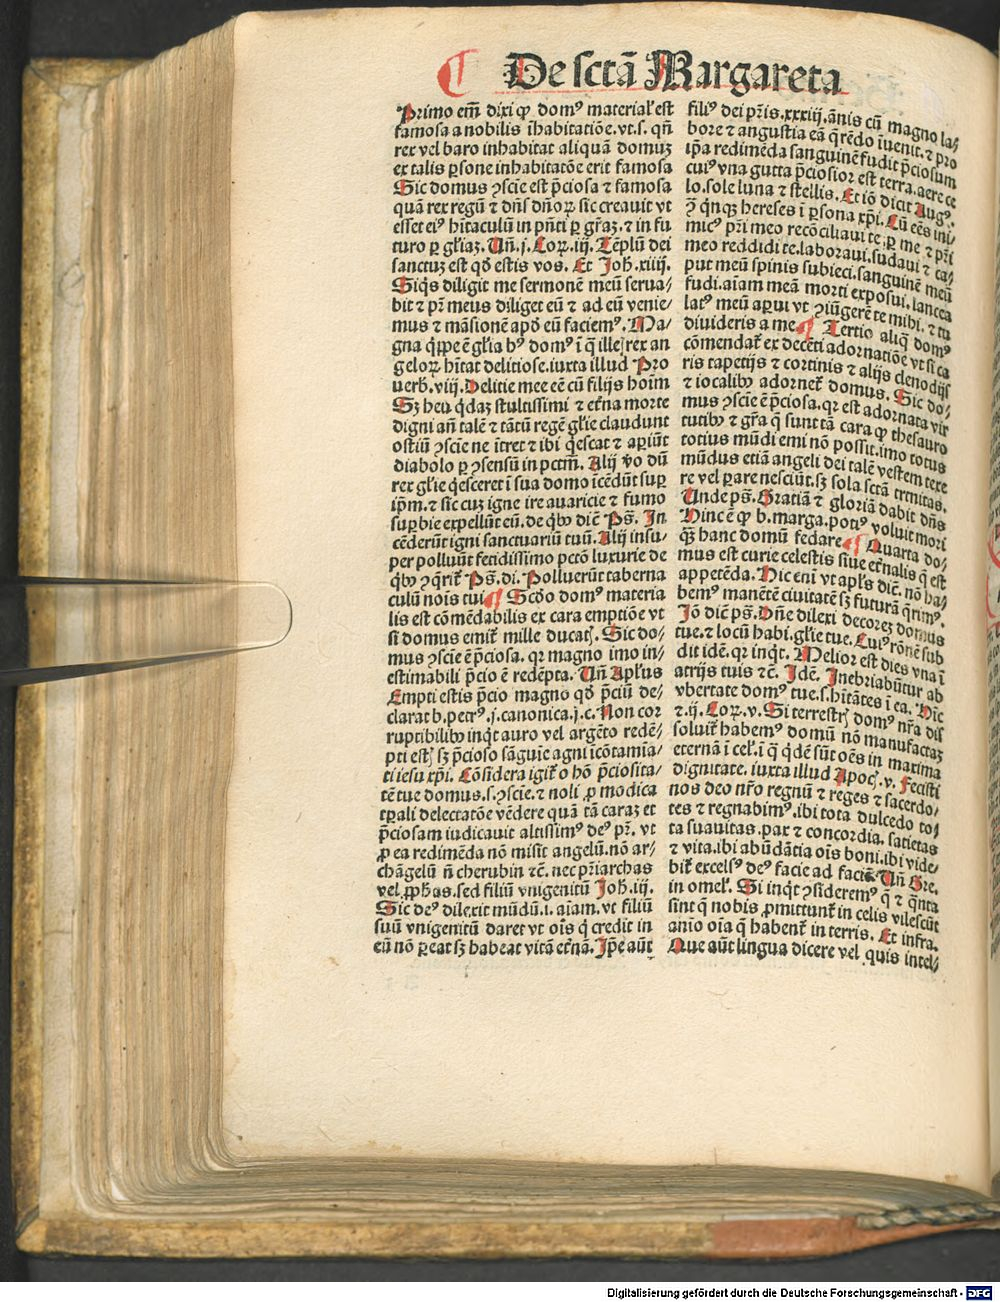 ¶ De sctã Margareta
Primo em̃ dixi ꝙ domꝰ material̕ est
famosa a nobilis ĩhabitatiõe. vt. s. qñ
rex vel baro inhabitat aliquã domuꝫ
ex talis ꝑsone inhabitatõe erit famosa
Sic domus ꝯscie est p̃ciosa ⁊ famosa
quã rex regũ ⁊ dñs dñoꝝ sic creauit vt
esset eiꝰ hĩtaculũ in pñti ꝑ gr̃aꝫ. ⁊ in fu
turo ꝑ gl̕iaꝫ. Uñ. j. Coꝝ. iij. Tẽplũ dei
sanctuꝫ est qđ estis vos. Et Joh̃. xiiij.
Siq̃s diligit me sermonẽ meũ serua⸗
bit ⁊ pr̃ meus diliget eũ ⁊ ad eũ venie⸗
mus ⁊ mãsionẽ apđ eũ faciemꝰ. Ma⸗
gna q̃ꝓe ẽ gl̕ia hꝰ domꝰ ĩ q̃ ille rex an
geloꝝ hĩtat delitiose. iuxta illud Pro
uerb̃. viij. Delitie mee eẽ cũ filijs hoĩm
Sꝫ heu q̃daꝫ stultissimi ⁊ et̃na morte
digni añ talẽ ⁊ tãtũ regẽ gl̕ie claudunt
ostiũ ꝯscie ne ĩtret ⁊ ibi q̃escat ⁊ aꝑiũt
diabolo ꝑ ꝯsensũ in pctm̃. Alij ṽo dũ
rex gl̕ie q̃esceret ĩ sua domo ĩcẽdũt suꝑ
ip̃m. ⁊ sic cuꝫ igne ire auaricie ⁊ fumo
suꝑbie expellũt eũ. de q̃bꝰ dic̃ Ps̃. In
cẽderũt igni sanctuariũ tuũ. Alij insu⸗
per polluũt fetidissimo pctõ luxurie de
q̃bꝰ ꝯq̃rit̃ Ps̃. di. Polluerũt taberna
culũ noĩs tui ¶ Scđo domꝰ materia
lis est cõmẽdabilis ex cara emptiõe vt
si domus emit̃ mille ducatꝭ. Sic do⸗
mus ꝯscie ẽ p̃ciosa. qꝛ magno imo in⸗
estimabili p̃cio ẽ redẽpta. Uñ Apl̕us
Empti estis p̃cio magno qđ p̃ciũ de⸗
clarat b. petrꝰ. j. canonica. j. c. Non cor
ruptibilibꝰ inq̃t auro vel argẽto redẽ⸗
pti estꝭ sꝫ p̃cioso sãguĩe agni ĩcõtamĩa⸗
ti iesu xp̃i. Cõsidera igit̃ o hõ p̃ciosita⸗
tẽ tue domus. s. ꝯscie. ⁊ noli ꝓ modica
tꝑali delectatõe vẽdere quã tã caraꝫ et
p̃ciosam iudicauit altissimꝰ deꝰ pr̃. vt
ꝓ ea redimẽda nõ misit angelũ. nõ ar⸗
chãgelũ ñ cherubin ⁊c̃. nec pr̃iarchas
vel ꝓph̃as. sed filiũ vnigenitũ Joh̃. iij.
Sic deꝰ dilexit mũdũ. i. aĩam. vt filiũ
suũ vnigenitũ daret vt oĩs q̃ credit in
eũ nõ ꝑeat sꝫ habeat vitã et̃nã. Ip̃e aũt
filiꝰ dei pr̃is. xxxiij. ãnis cũ magno la⸗
bore ⁊ angustia eã q̃rẽdo ĩuenit. ⁊ pro
ip̃a redimẽda sanguinẽ fudit p̃ciosum
cuiꝰ vna gutta p̃ciosior est terra. aere ce
lo. sole luna ⁊ stellis. Et iõ dicit Augꝰ.
ꝯ̃ q̃nqꝫ hereses ĩ ꝑsona xp̃i. Cũ eẽs ini⸗
micꝰ pr̃i meo recõciliaui te. ꝑ me ⁊ pr̃i
meo reddidi te. laboraui. sudaui ⁊ ca⸗
put meũ spinis subieci. sanguinẽ meũ
fudi. aĩam meã morti exposui. lancea
latꝰ meũ aꝑui vt ꝯiũgerẽ te mihi. ⁊ tu
diuideris a me ¶ Tertio aliq̃ domꝰ
cõmendat̃ ex decẽti adornatiõe vt si ca
ris tapetijs ⁊ cortinis ⁊ alijs clenodijs
⁊ iocalibꝰ adornet̃ domus. Sic do⸗
mus ꝯscie ẽ p̃ciosa. qꝛ est adornata vir
tutibꝰ ⁊ gr̃a q̃ sunt tã cara ꝙ thesauro
totius mũdi emi nõ possit. imo totus
mũdus etiã angeli dei talẽ vestem texe
re vel parare nesciũt. sꝫ sola sctã trinitas.
Unde ps̃. Gratiã ⁊ gloriã dabit dñs
Hinc ẽ ꝙ b. marga. potiꝰ voluit mori
q̃ꝫ hanc domũ fedare ¶ Quarta do⸗
mus est curie celestis siue et̃nalis q̃ est
appetẽda. Hic eni̕ vt apl̕s dic̃. nõ ha⸗
bemꝰ manẽtẽ ciuitatẽ sꝫ futurã q̃rimꝰ.
Jõ dic̃ ps̃. Dñe dilexi decoreꝫ domus
tue. ⁊ locũ habi. gl̕ie tue. Cuiꝰ rõnẽ sub
dit idẽ. qꝛ inq̃t. Melior est dies vna ĩ
atrijs tuis ⁊c̃. Idẽ. Inebriabũtur ab
vbertate domꝰ tue. s. hĩtãtes ĩ ea. Hic
⁊. ij. Coꝝ. v. Si terrestrꝭ domꝰ nr̃a dis
soluit̃ habemꝰ domũ nõ manufactaꝫ
eternã ĩ cel̕. ĩ q̃ q̃dẽ sũt oẽs in maxima
dignitate. iuxta illud Apocꝭ. v. Fecisti
nos deo nr̃o regnũ ⁊ reges ⁊ sacerdo⸗
tes ⁊ regnabimꝰ. ibi tota dulcedo to⸗
ta suauitas. pax ⁊ concordia. satietas
⁊ vita. ibi abũdãtia oĩs boni. ibi vide⸗
bit̃ excelsꝰ deꝰ facie ad faciẽ. Uñ Gre.
in omel̕. Si inq̃t ꝯsideremꝰ q̃ ⁊ q̃nta
sint q̃ nobis ꝓmittunt̃ in celis vilescũt
anĩo oĩa q̃ habent̃ in terris. Et infra.
Que aũt lingua dicere vel quis intel⸗
Digitalisierung gefördert durch die Deutsche Forschungsgemeinschaft - DFG